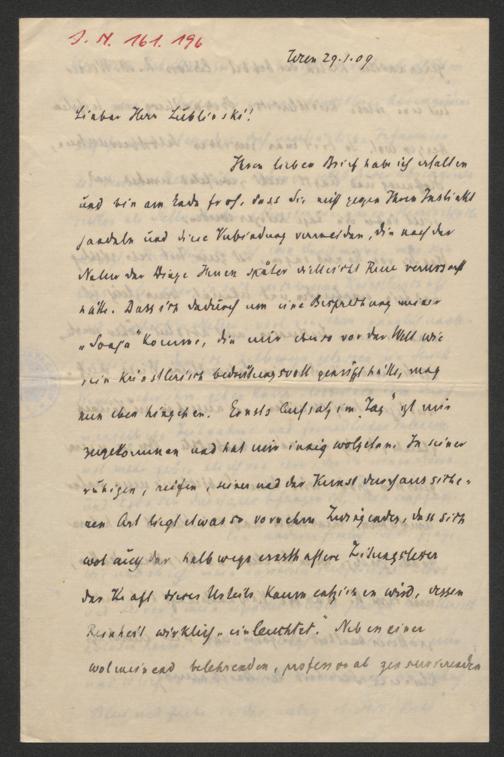 J. N. 161.196
Wien 29.1.09
Lieber Herr Lublinski!
Ihren lieben Brief habe ich erhalten
und bin am Ende froh, dass Sie nicht gegen Ihren Instinkt
handeln und diese Verbindung vermeiden, die nach der
Natur der Dinge Ihnen später vielleicht Reue verursacht
hätte. Dass ich dadurch um eine Besprechung meiner
„Sonja" komme, die mir ebenso vor der Welt wie
rein künstlerisch bedeutungsvoll genützt hätte, mag
nun eben hingehen. Ernsts Aufsatz im „Tag" ist mir
zugekommen und hat mir innig wolgetan. In seiner
ruhigen, reifen, seiner und der Kunst durchaus siche-
ren Art liegt etwas so vornehm Zwingendes, dass sich
wol auch der halbwegs ernsthaftere Zeitungsleser
der Kraft dieses Urteils kaum entziehen wird, dessen
Reinheit wirklich „einleuchtet." Neben einer
wolmeinend belehrenden, professoral